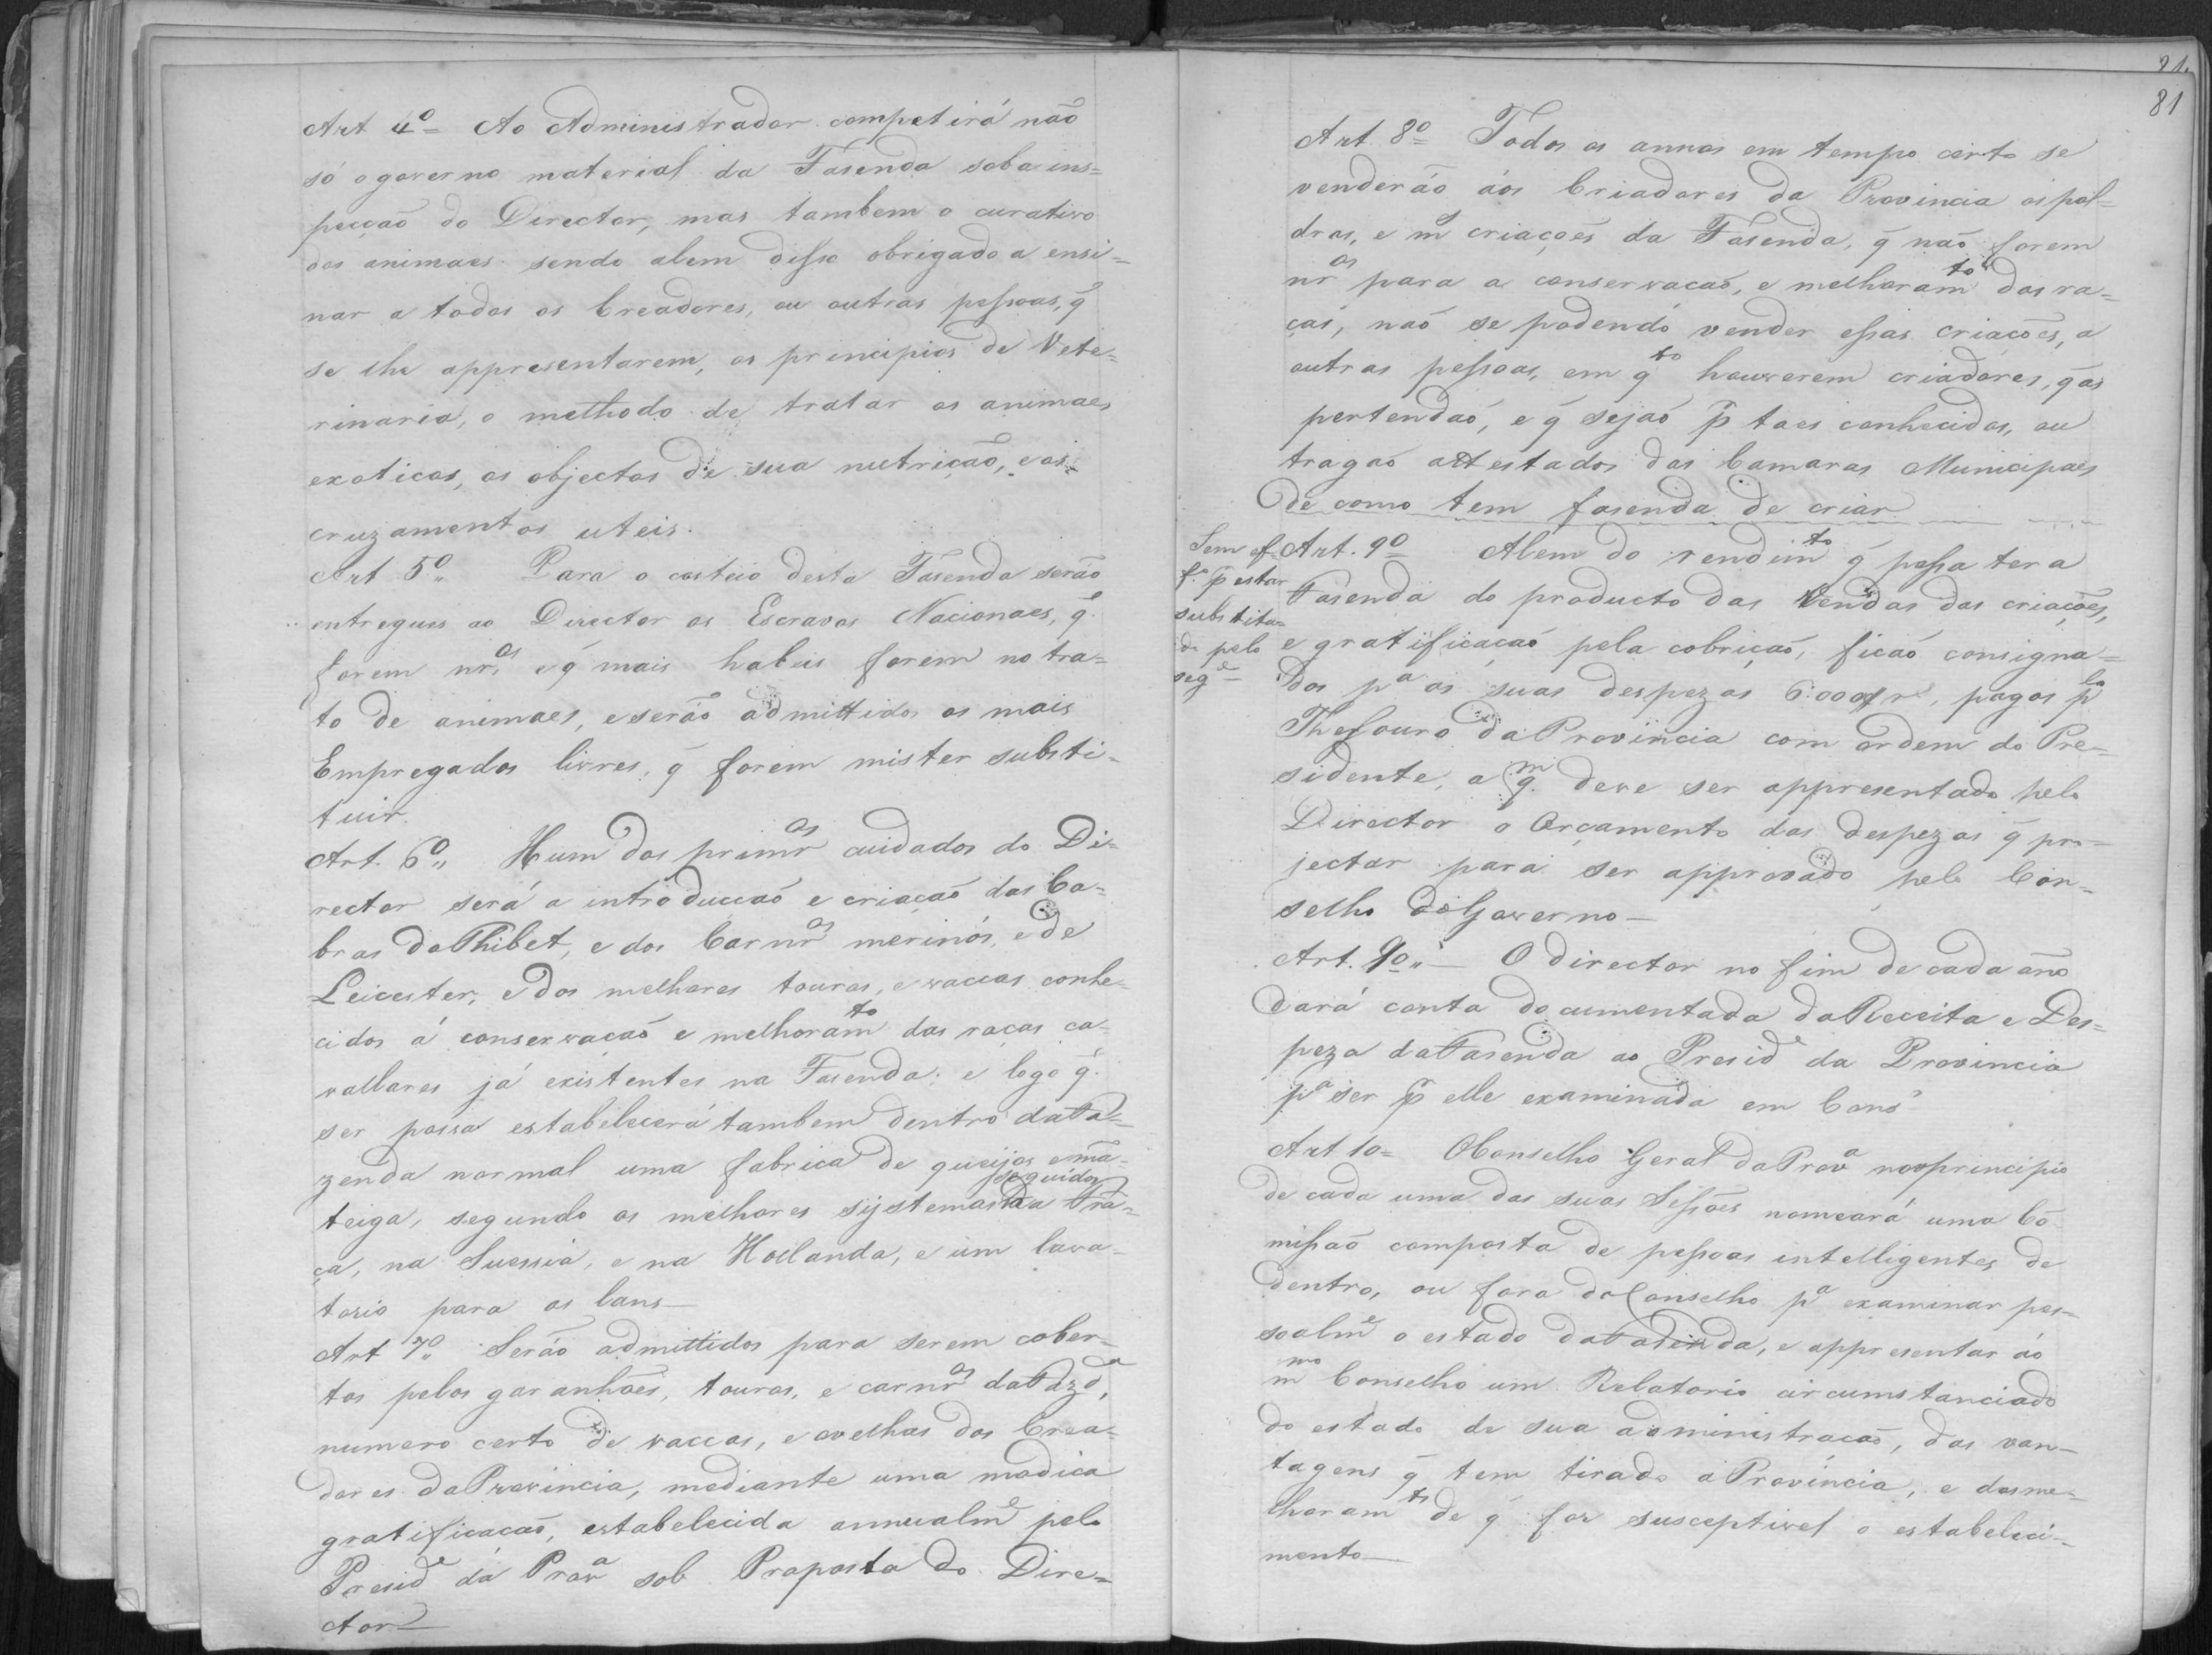 Art 4º= Ao Administrador competirá não
só o governo material da Fasenda sob a ins=
pecção do Director, mas tambem o curativo
dos animaes sendo alem disso obrigado a ensi=
nar a todos os Creadores, ou outras pessoas, q̃
se lhe appresentarem, os principios de Vete=
rinaria, o methodo de tratar os animaes
exoticos, os objectos de sua nutrição, e os
cruzamentos uteis.
Art 5º„ Para o costeio desta Fasenda serão
entregues ao Director os Escravos Nacionaes, q̃
forem nr.os e q̃ mais habeis forem no tra=
to de animaes, e serão admittidos os mais
Empregados livres, q̃ forem mister substi=
tuir.
Art. 6º„ Hum dos primr.os cuidados do Di=
rector será a introducção e criação das Ca=
bras do Thibet, e dos Carnr.os merinós, e de
Leicester, e dos melhores touros, e vaccas conhe=
cidos á conservação e melhoram.to das raças ca=
vallares já existentes na Fasenda; e logo q̃
ser possa estabelecerá tambem dentro da Fa=
zenda normal uma fabrica de queijos e mã=
teiga, segundo os melhores systemas seguidos na Frã=
ça, na Suessia, e na Hollanda, e um lava=
torio para as lans—
Art 7º„ Serão admittidos para serem cober=
tos pelos garanhões, touros, e carnr.os da Fazd.a,
numero certo de vaccas, e ovelhas dos Crea=
dores da Provincia, mediante uma modica
gratificação, estabelecida annualm.e pelo
Presid.e da Prov.a sob Proposta do Dire=
ctor—
81
Art. 8º= Todos os annos em tempo certo se
venderão aos Criadores da Provincia os pol=
dros, e m.s criações da Fasenda, q̃ não forem
nr.os para a conservação, e melhoram.to das ra=
ças, não se podendo vender essas criações, a
outras pessoas, em q.to houverem criadores, q̃ as
pertendão, e q̃ sejão p̃ taes conhecidos, ou
tragão attestados das Camaras Municipaes
de como tem fasenda de criar
Sem ef-
f.o p̃ estar
substitu=
ido pelo
seg.e—
Art. 9º= Alem do rendim.to q̃ possa ter a
Fasenda do producto das Vendas das criações,
e gratificação pela cobrição, ficão consigna=
dos p.a as suas despezas 6:000$ r.s, pagos p.lo
Thesouro da Provincia com ordem do Pre=
sidente, a q.m deve ser appresentado pelo
Director o Orçamento das despezas q̃ pro=
jectar para ser approvado pelo Con=
selho do Governo—
Art. 9º„— O director no fim de cada año
dará conta documentada da Receita e Des=
peza da Fasenda ao Presid.e da Provincia
p.a ser p̃ elle examinada em Cons.o
Art 10= O Conselho Geral da Prov.a no principio
de cada uma das suas Sessões nomeará uma Cõ=
missão composta de pessoas intelligentes de
dentro, ou fora do Conselho p.a examinar pes=
soalm.e o estado da Fasenda, e appresentar ao
m.mo Conselho um Relatorio circumstanciado
do estado de sua administração, das van=
tagens q̃ tem tirado a Provincia, e dos me=
lhoram.tos de q̃ for susceptivel o estabeleci=
mento—